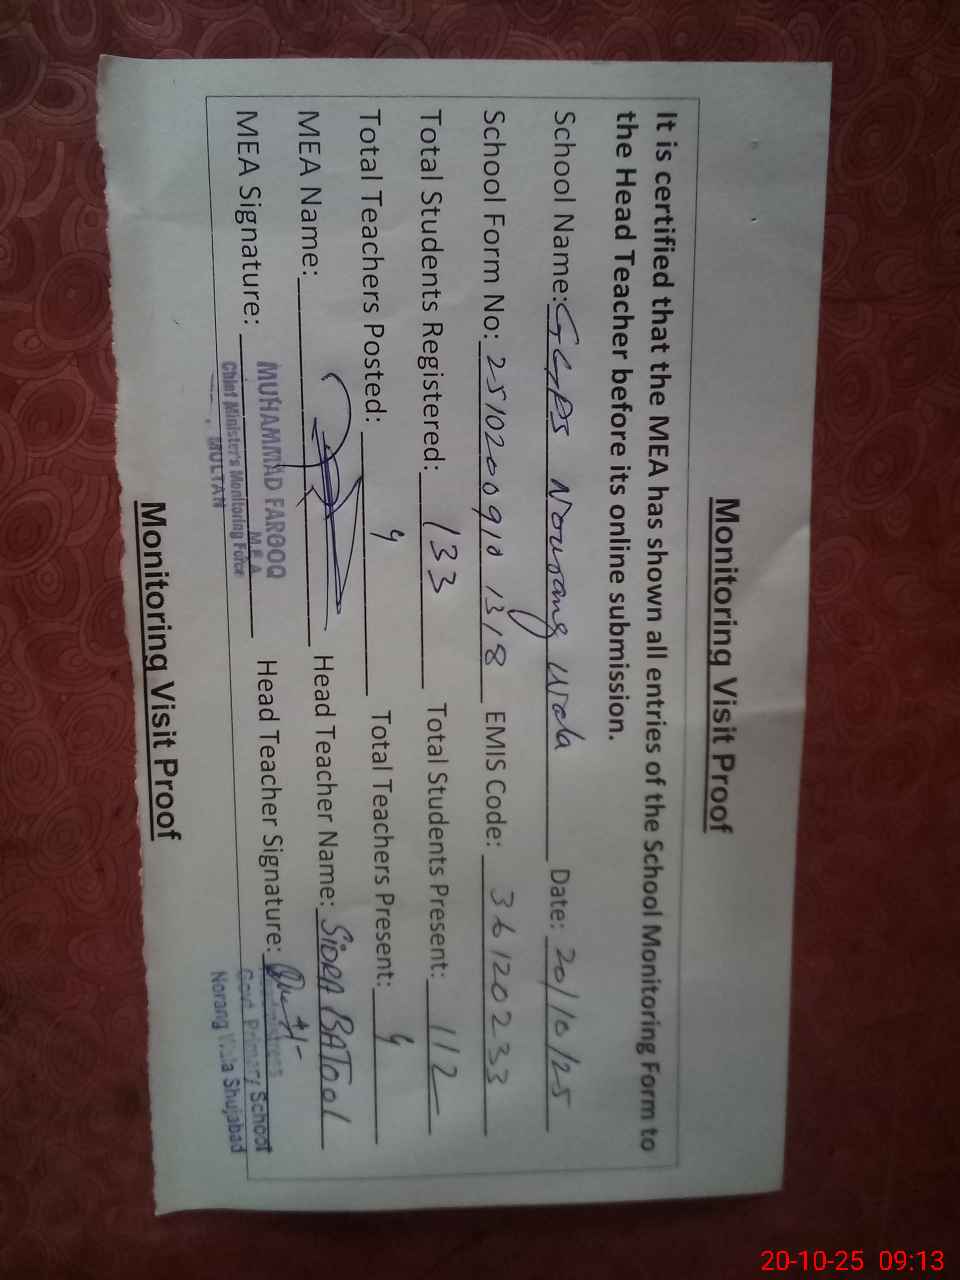 Monitoring Visit Proof
It is certified that the MEA has shown all entries of the School Monitoring Form to
the Head Teacher before its online submission.
School Name: GGPS Nourang Wala Date: 20/10/25
School Form No: 2510200910 1318 EMIS Code: 36120233
Total Students Registered: 133 Total Students Present: 112
Total Teachers Posted: 4 Total Teachers Present: 4
MEA Name: Head Teacher Name: SIDRA BATOOL
MEA Signature: Head Teacher Signature:
MUHAMMAD FAROOQ
M.E.A
Chief Minister's Monitoring Force
MULTAN
Govt. Primary School
Norang Wala Shujabad
Monitoring Visit Proof
20-10-25 09:13